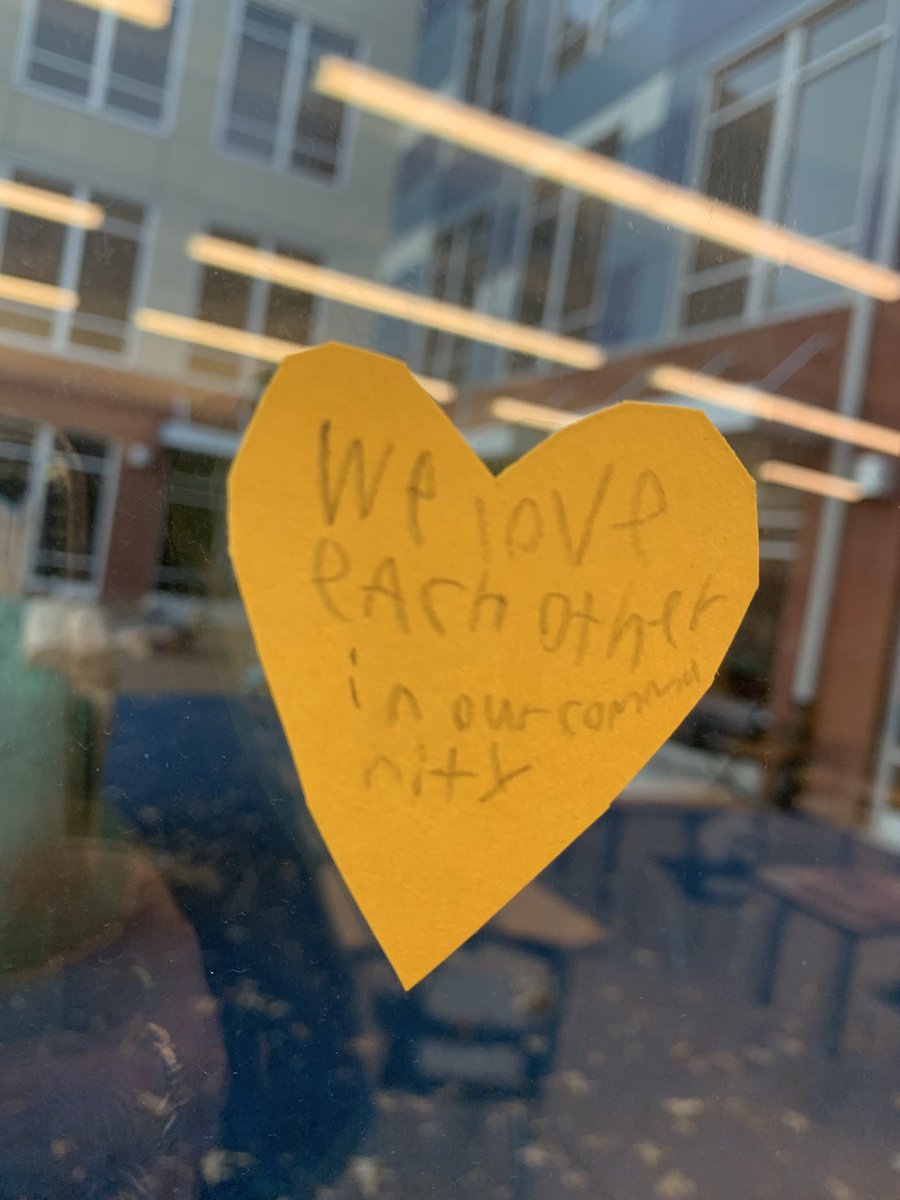 We love
eAch other
in our commu
nity